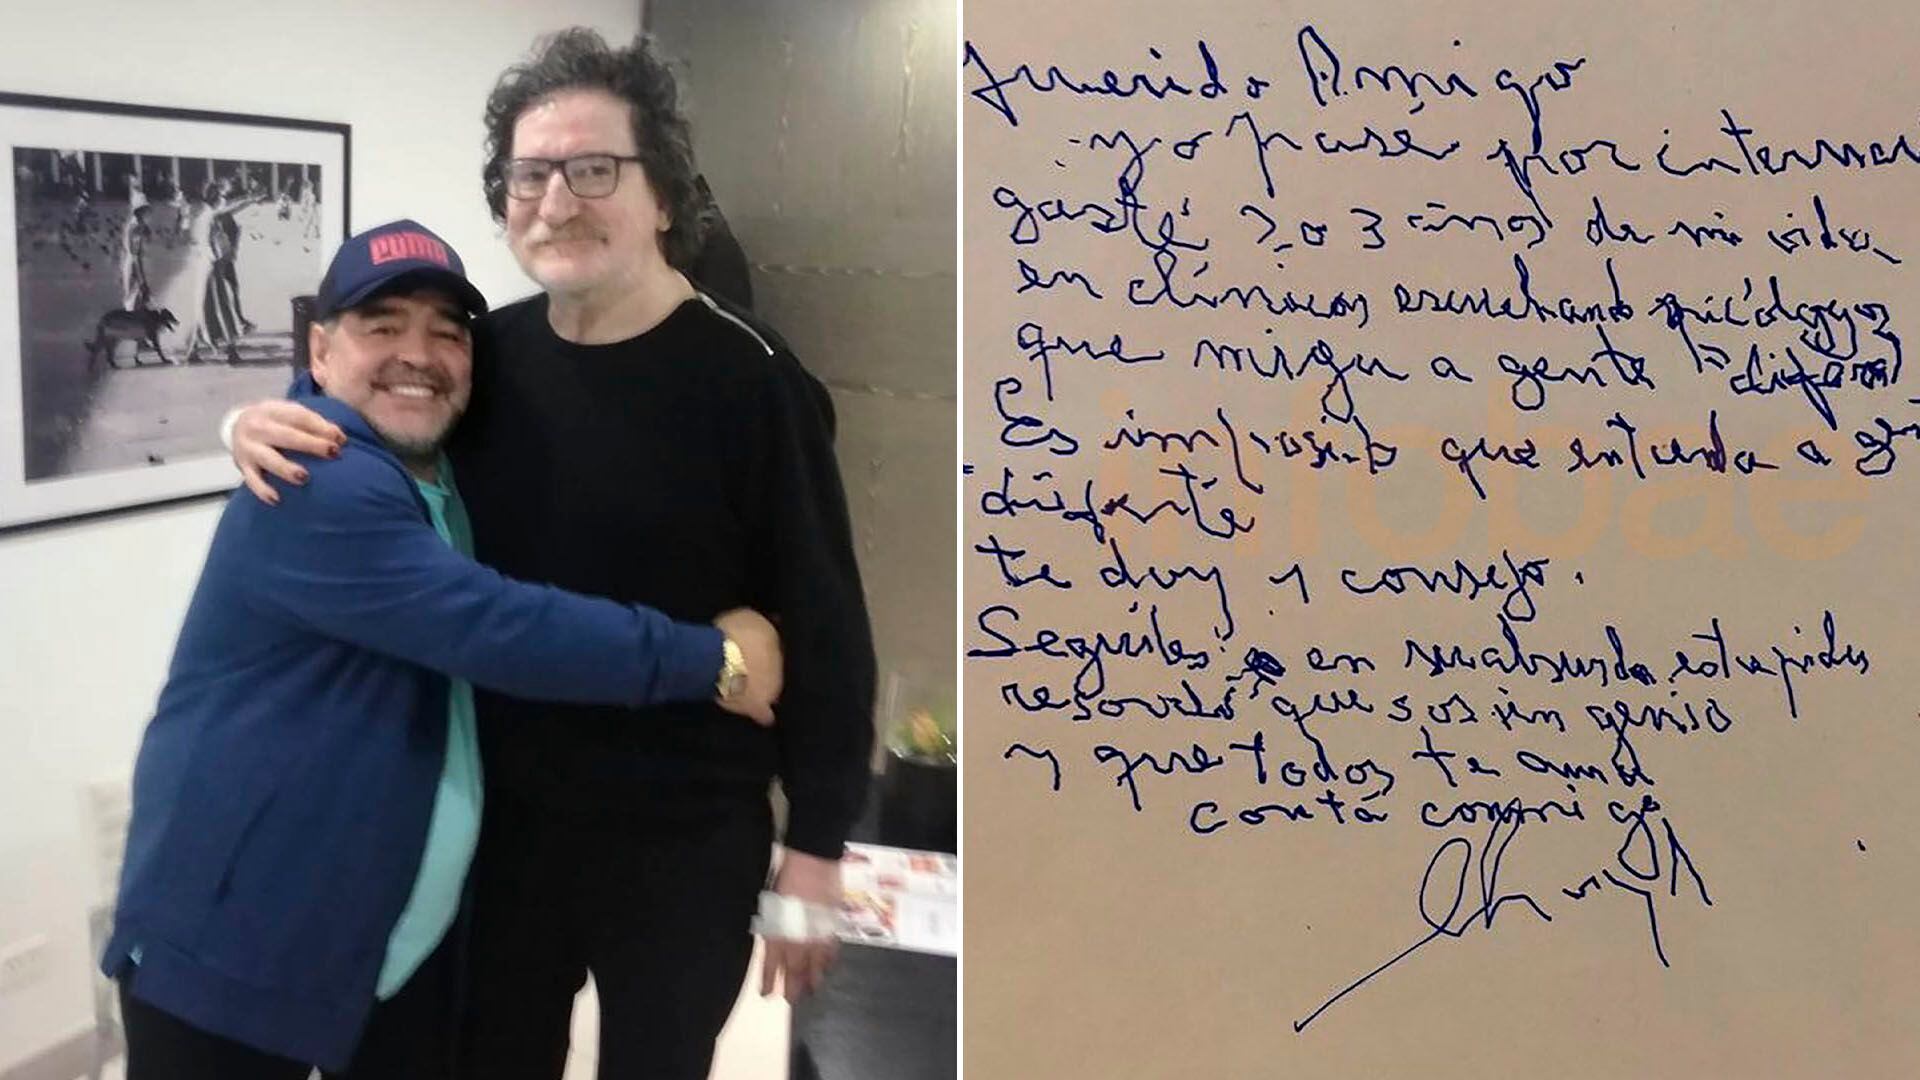 PUMA
Querido Amigo
yo pasé por internar
gasté 2 o 3 años de mi vida
en clínicas escuchando sicólogos
que miran a gente
Es imposible que entienda a
te doy 1 consejo.
Seguiles en
recordá que sos un genio
y que todos te aman
contá conmigo
Charly
infobae